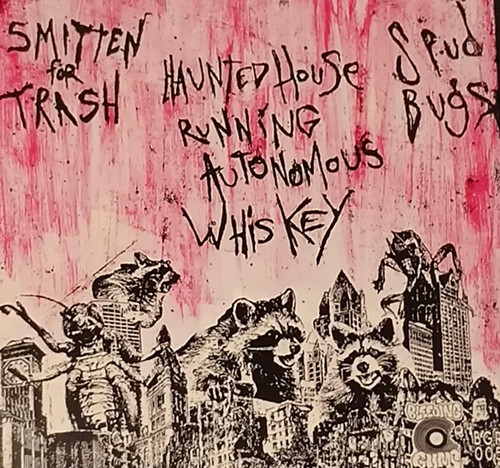 SMITTEN
for
TRASH
HAUNTED HOUSE
RUNNiNG
AUTONOMOUS
WHisKEY
Spud
Bugs
BLEEDING
GUMS
BG
00